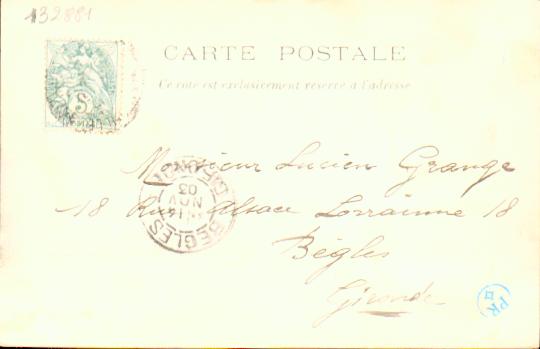 132881
CARTE POSTALE
Ce côté est exclusivement réservé à l'adresse
Monsieur Lucien Grange
18 Rue Alsace Lorrainne 18
Bègles
Gironde
BEGLES GIRONDE
14
NOV
03
PR